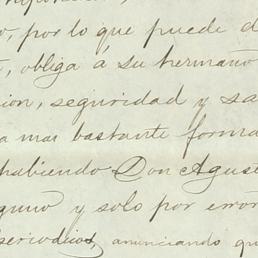 o, por lo que puede d
, obliga á su hermano
cion, seguridad y sa
a mas bastante forma
habiendo Don Agust
guno y solo por erro
periodicos anunciando qu